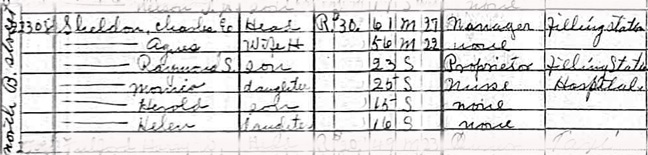 north B. street
2308 Sheldon, Charles E Head R $30. 61 M 27 Manager Filling Station
—— Agnes Wife H 56 M 22 none
—— Raymond S. son 23 S Proprietor Filling Station
—— Monnie daughter 25 S Nurse Hospital
—— Herold son 15 S none
—— Helen daughter 16 S none